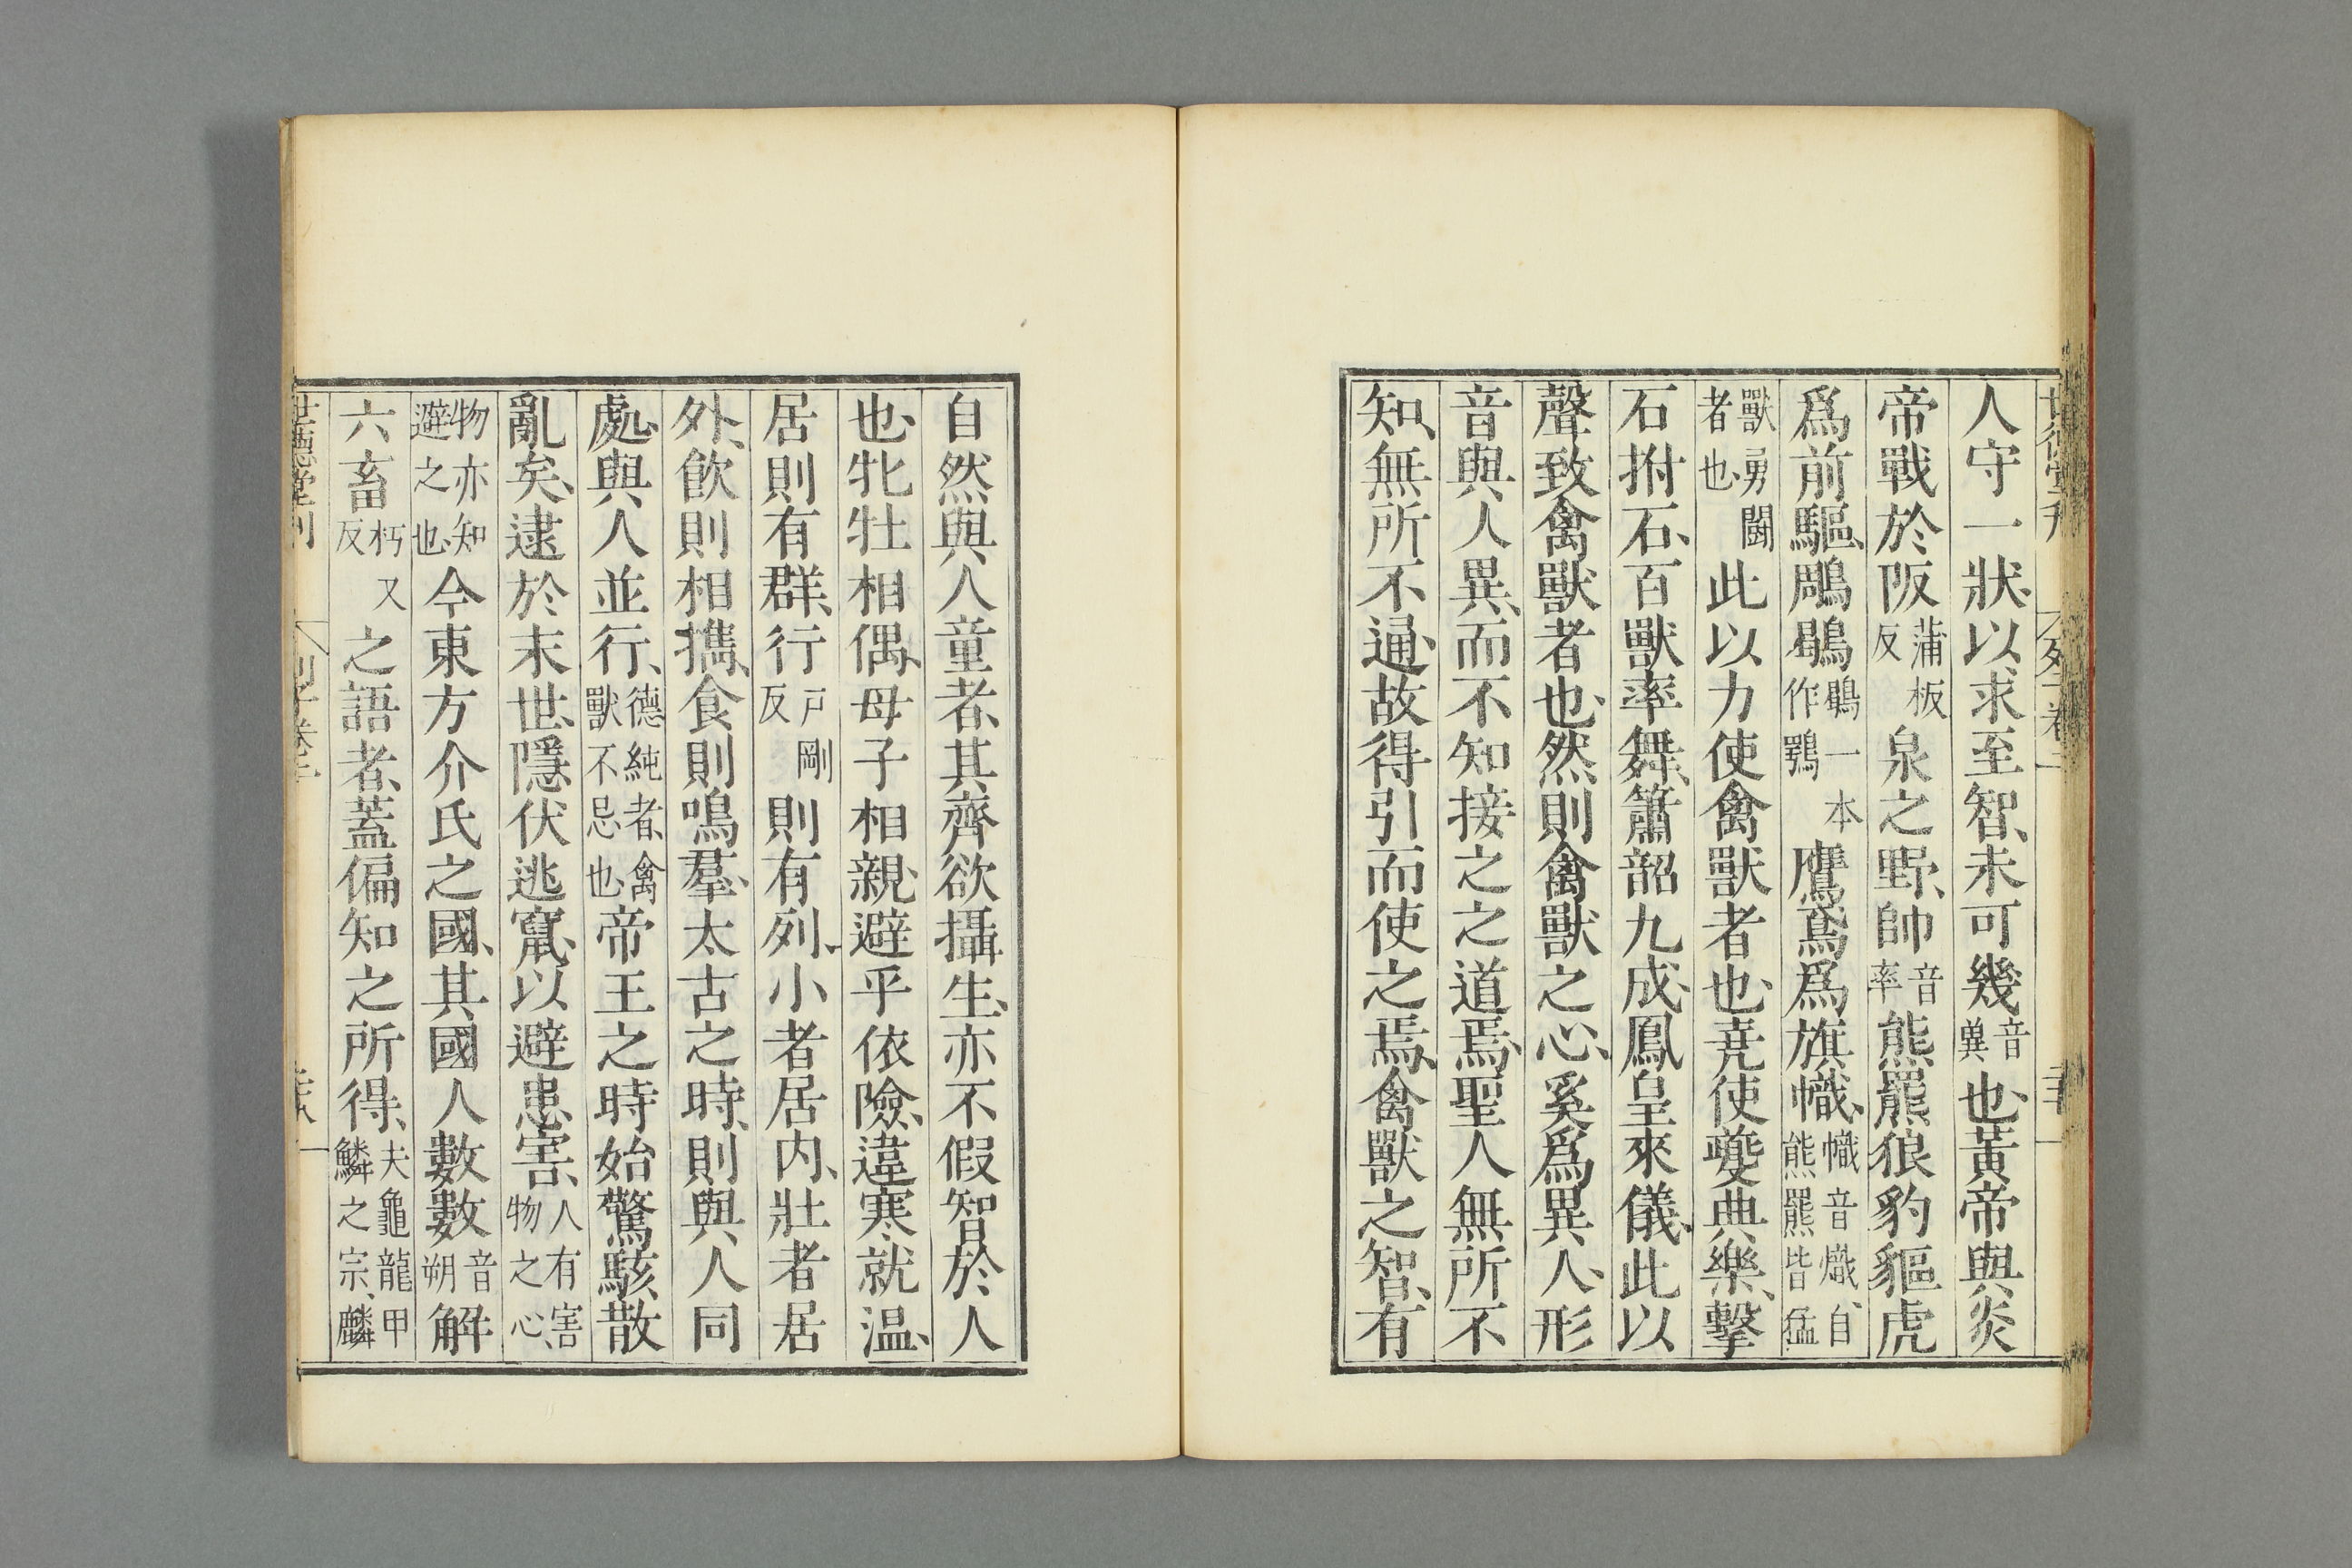 人守一狀、以求至智、未可幾音冀也、黃帝與炎
帝戰於阪蒲板反泉之野、帥音率熊羆狼豹貙虎
爲前驅、鵰鶡鶡一本作鶚鷹鳶爲旗幟、幟音熾、自熊羆皆猛
獸勇鬭者也、此以力使禽獸者也、堯使夔典樂、擊
石拊石、百獸率舞、簫韶九成、鳳皇來儀、此以
聲致禽獸者也、然則禽獸之心、奚爲異人、形
音與人異、而不知接之之道焉、聖人無所不
知、無所不通、故得引而使之焉、禽獸之智、有
自然與人童者、其齊欲攝生、亦不假智於人
也、牝牡相偶、母子相親、避乎依險、違寒就溫、
居則有群、行戶剛反則有列、小者居內、壯者居
外、飲則相擕、食則鳴羣、太古之時、則與人同
處、與人並行、德純者、禽獸不忌也、帝王之時始驚駭散
亂矣、逮於末世、隱伏逃竄、以避患害、人有害物之心、
物亦知避之也、今東方介氏之國、其國人數數音朔解
六畜杇又反之語者、蓋偏知之所得、夫龜龍甲鱗之宗、麟
世德堂刊 列子卷二